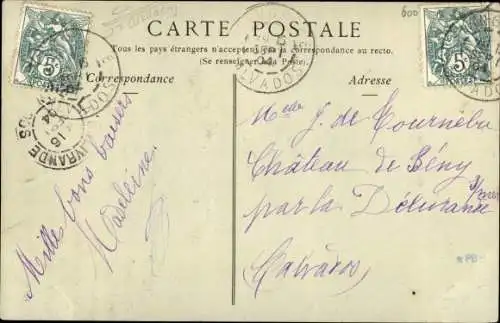 CARTE POSTALE
Tous les pays étrangers n'acceptent pas la correspondance au recto.
(Se renseigner à la Poste.)
Correspondance
Adresse
Mille bons baisers
Madeleine
Melle J. de Tournebu
Château de Bény
par la Délivrande
Calvados
5c
5c
LIVRANDE
CALVADOS
600